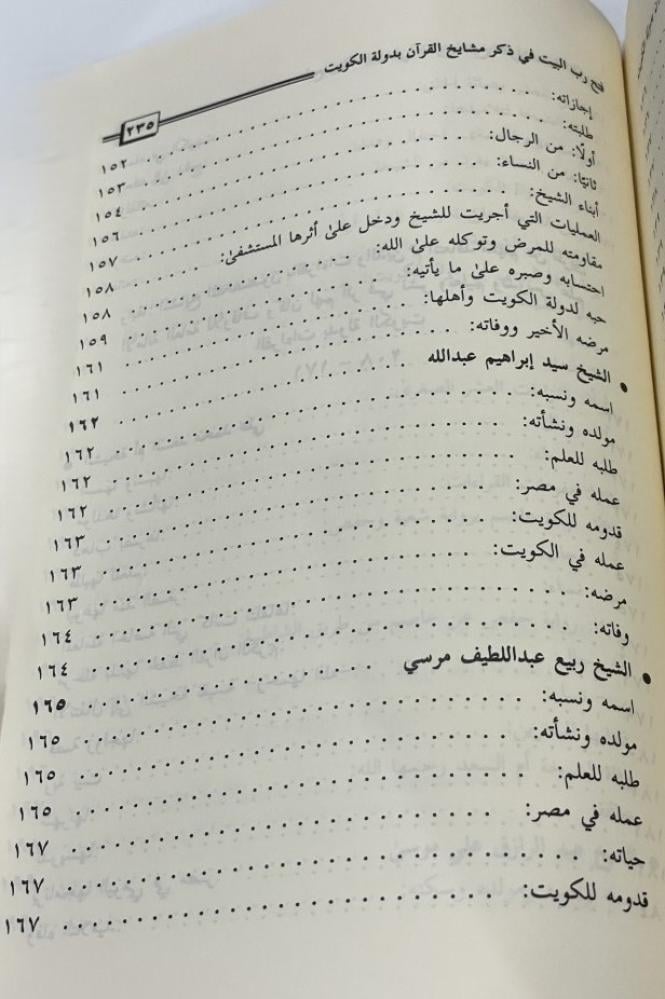 فتح رب البيت في ذكر مشايخ القرآن بدولة الكويت
٢٣٥
إجازاته: ١٥٢
طلبته: ١٥٣
أولًا: من الرجال: ١٥٤
ثانيًا: من النساء: ١٥٦
أبناء الشيخ: ١٥٧
العمليات التي أجريت للشيخ ودخل علىٰ أثرها المستشفىٰ: ١٥٨
مقاومته للمرض وتوكله علىٰ الله: ١٥٨
احتسابه وصبره علىٰ ما يأتيه: ١٥٩
حبه لدولة الكويت وأهلها: ١٦١
مرضه الأخير ووفاته: ١٦١
• الشيخ سيد إبراهيم عبدالله ١٦٢
اسمه ونسبه: ١٦٢
مولده ونشأته: ١٦٢
طلبه للعلم: ١٦٢
عمله في مصر: ١٦٣
قدومه للكويت: ١٦٣
عمله في الكويت: ١٦٣
مرضه: ١٦٤
وفاته: ١٦٤
• الشيخ ربيع عبداللطيف مرسي ١٦٥
اسمه ونسبه: ١٦٥
مولده ونشأته: ١٦٥
طلبه للعلم: ١٦٥
عمله في مصر: ١٦٧
حياته: ١٦٧
قدومه للكويت: ١٦٧